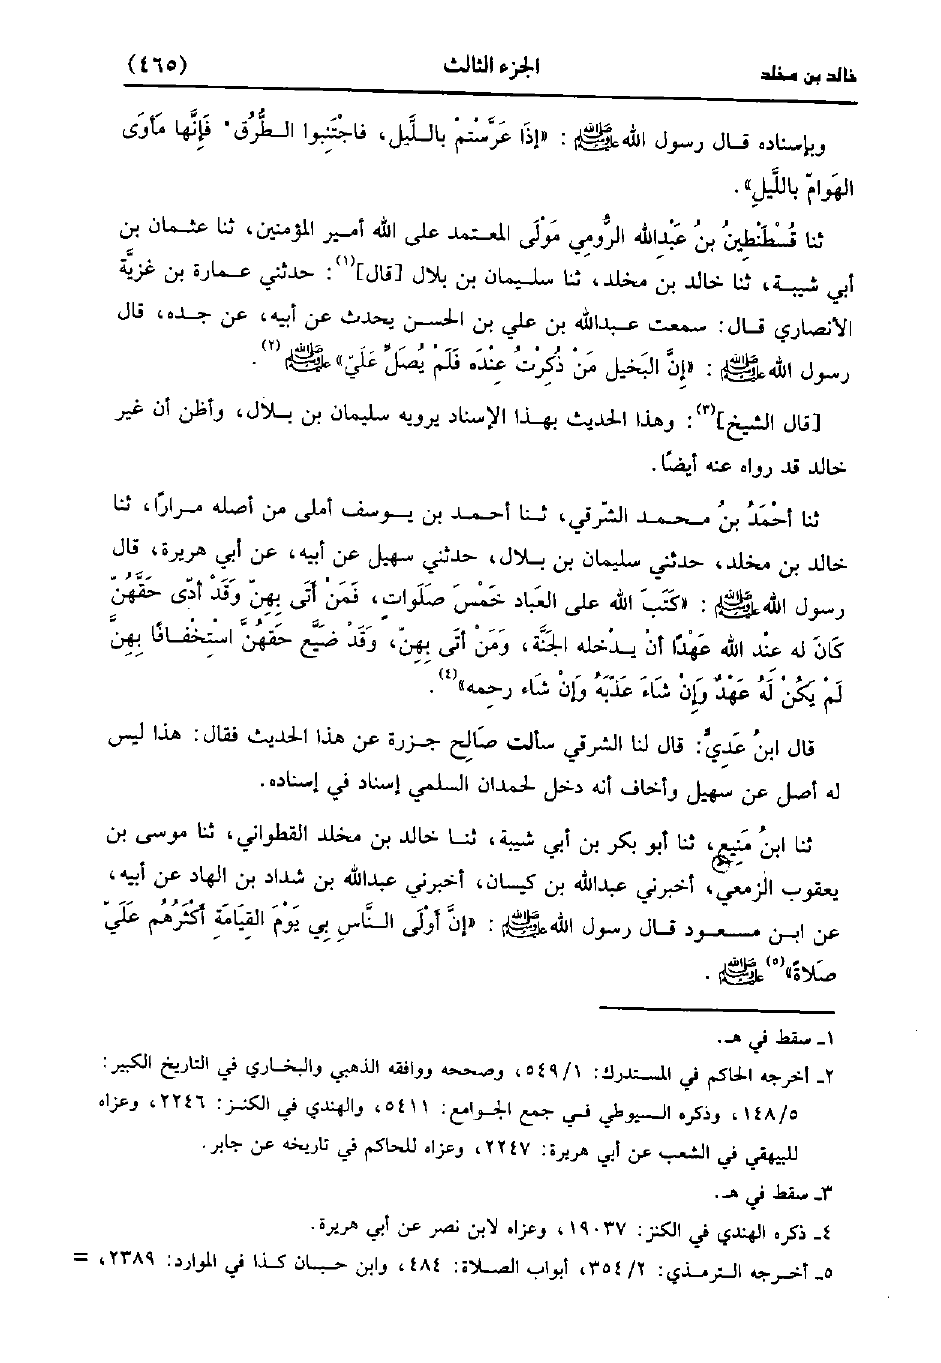 خالد بن مخلد الجزء الثالث (٤٦٥)
وبإسناده قال رسول الله ﷺ : «إذَا عَرَّسْتمْ بالليل، فاجتَنِبوا الطُّرُق، فَإنَّها مَأوَى
الهَوامّ باللَّيلِ».
ثنا قُسْطَنْطِينُ بنُ عَبْدِالله الرُّومِي مَوْلَى المعتمد على الله أمير المؤمنين، ثنا عثمان بن
أبي شيبة، ثنا خالد بن مخلد، ثنا سليمان بن بلال [قال](١): حدثني عمارة بن غزيَّة
الأنصاري قال: سمعت عبدالله بن علي بن الحسن يحدث عن أبيه، عن جده، قال
رسول الله ﷺ : «إنَّ البَخيل مَنْ ذُكِرْتُ عِنْدَه فَلَمْ يُصَلِّ عَلَيّ» ﷺ (٢).
[قال الشيخ](٣): وهذا الحديث بهذا الإسناد يرويه سليمان بن بلال، وأظن أن غير
خالد قد رواه عنه أيضًا.
ثنا أحْمَدُ بنُ محمد الشرقي، ثنا أحمد بن يوسف أملى من أصله مرارًا، ثنا
خالد بن مخلد، حدثني سليمان بن بلال، حدثني سهيل عن أبيه، عن أبي هريرة، قال
رسول الله ﷺ : «كَتَبَ الله على العباد خَمْسَ صَلَوات، فَمَنْ أتَى بِهِنّ وَقَدْ أدّى حَقَّهُنّ
كَانَ له عِنْد الله عَهْدًا أنْ يدْخله الجَنَّة، ومَنْ أتَى بِهِنّ، وَقَدْ ضَيَّع حَقهُنَّ اسْتخْفافًا بِهِنَّ
لَمْ يَكُنْ لَهُ عَهْدٌ وَإنْ شَاءَ عَذّبَهُ وَإنْ شَاء رحمه»(٤).
قال ابنُ عَدِيٍّ: قال لنا الشرقي سألت صَالِح جزرة عن هذا الحديث فقال: هذا ليس
له أصل عن سهيل وأخاف أنه دخل لحمدان السلمي إسناد في إسناده.
ثنا ابنُ مَنِيعٍ، ثنا أبو بكر بن أبي شيبة، ثنا خالد بن مخلد القطواني، ثنا موسى بن
يعقوب الزمعي، أخبرني عبدالله بن كيسان، أخبرني عبدالله بن شداد بن الهاد عن أبيه،
عن ابن مسعود قال رسول الله ﷺ : «إنَّ أوْلَى النَّاسِ بِي يَوْمَ القِيَامَةِ أكْثَرُهُم عَلَيّ
صَلاةً»(٥) ﷺ .
١ـ سقط في هـ.
٢ـ أخرجه الحاكم في المستدرك: ٥٤٩/١، وصححه ووافقه الذهبي والبخاري في التاريخ الكبير:
١٤٨/٥، وذكره السيوطي في جمع الجوامع: ٥٤١١، والهندي في الكنز: ٢٢٤٦، وعزاه
للبيهقي في الشعب عن أبي هريرة: ٢٢٤٧، وعزاه للحاكم في تاريخه عن جابر.
٣ـ سقط في هـ.
٤ـ ذكره الهندي في الكنز: ١٩٠٣٧، وعزاه لابن نصر عن أبي هريرة.
٥ـ أخرجه الترمذي: ٣٥٤/٢، أبواب الصلاة: ٤٨٤، وابن حبان كذا في الموارد: ٢٣٨٩، =